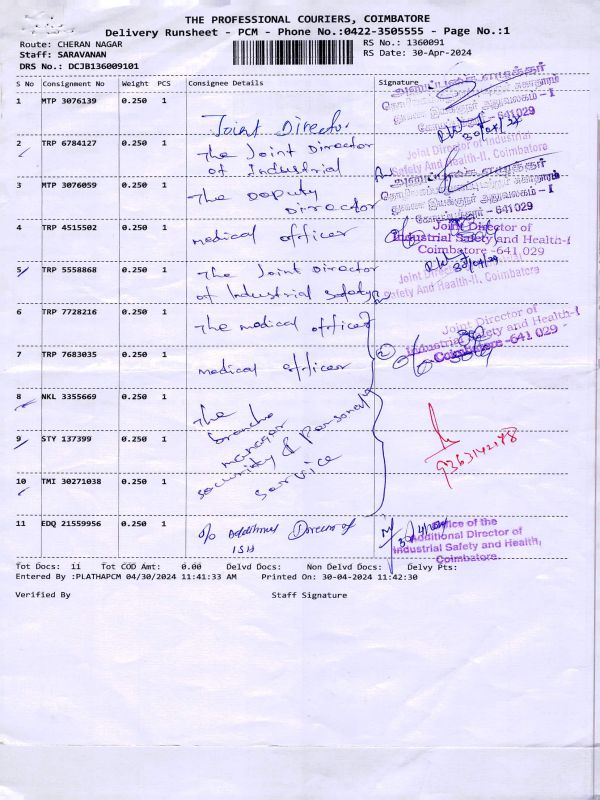 THE PROFESSIONAL COURIERS, COIMBATORE
Delivery Runsheet - PCM - Phone No.:0422-3505555 - Page No.:1
Route: CHERAN NAGAR
RS No.: 1360091
Staff: SARAVANAN
RS Date: 30-Apr-2024
DRS No.: DCJB136009101
S No Consignment No Weight PCS Consignee Details Signature
1 MTP 3076139 0.250 1 Joint Director
641029
30/04/24
2 TRP 6784127 0.250 1 The Joint Director
of Industrial
Joint Director of Industrial
Safety And Health-II, Coimbatore
3 MTP 3076059 0.250 1 The Deputy
Director
641029
4 TRP 4515502 0.250 1 medical officer
Joint Director of
Industrial Safety and Health-I
Coimbatore -641 029
5 TRP 5558868 0.250 1 The Joint Director
of Industrial Safety
30/04/24
Joint Director of Industrial
Safety And Health-II, Coimbatore
6 TRP 7728216 0.250 1 The medical officer
Joint Director of
Industrial Safety and Health-I
Coimbatore -641 029
7 TRP 7683035 0.250 1 medical officer
8 NKL 3355669 0.250 1 The
branch
manager
9 STY 137399 0.250 1 security & Personal
service
9363142178
10 TMI 30271038 0.250 1
11 EDQ 21559956 0.250 1 o/o Additional Director of
ISH
30/4/24
Office of the
Additional Director of
Industrial Safety and Health,
Coimbatore.
Tot Docs: 11 Tot COD Amt: 0.00 Delvd Docs: Non Delvd Docs: Delvy Pts:
Entered By :PLATHAPCM 04/30/2024 11:41:33 AM Printed On: 30-04-2024 11:42:30
Verified By Staff Signature